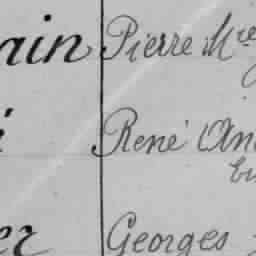 ain Pierre Mie
René An
er Georges